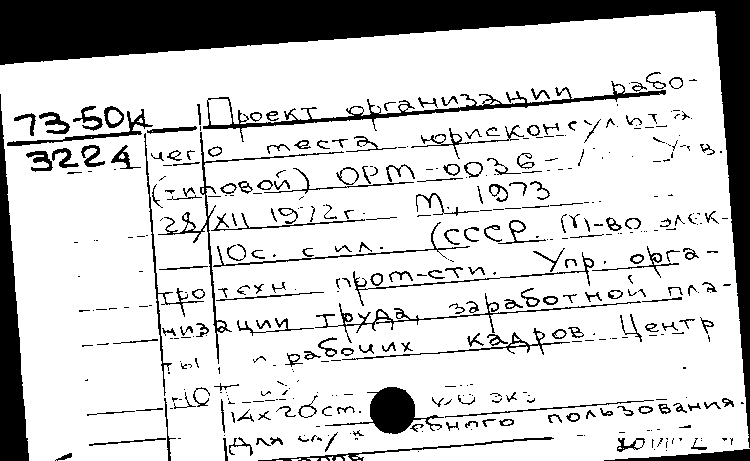 73-50к
3224
Проект организации рабо-
чего места юрисконсульта
(типовой) ОРМ-0036- Утв.
28/XII 1972г. М., 1973
10с. с ил. (СССР. М-во элек-
тротехн. пром-сти. Упр. орга-
низации труда, заработной пла-
ты и рабочих кадров. Центр
НОТ
14х20см. экз
Для служебного пользования.